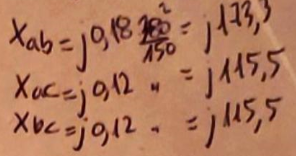 Xab = j 0,18 380²/150 = j 173,3
Xac = j 0,12 " = j 115,5
Xbc = j 0,12 " = j 115,5